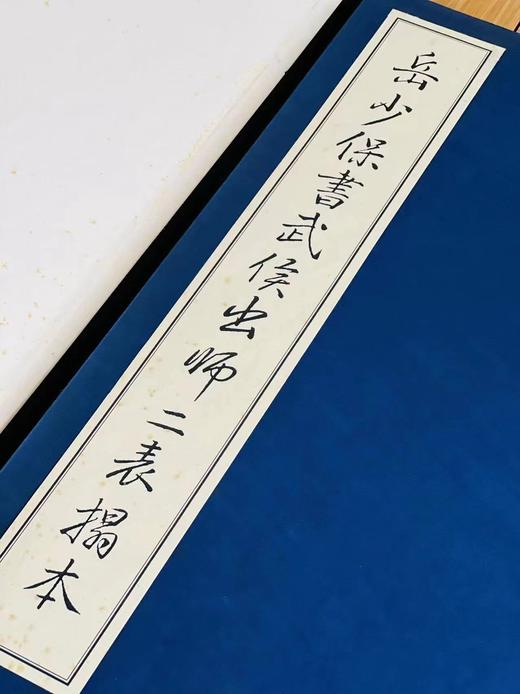 岳少保書武侯出师二表搨本